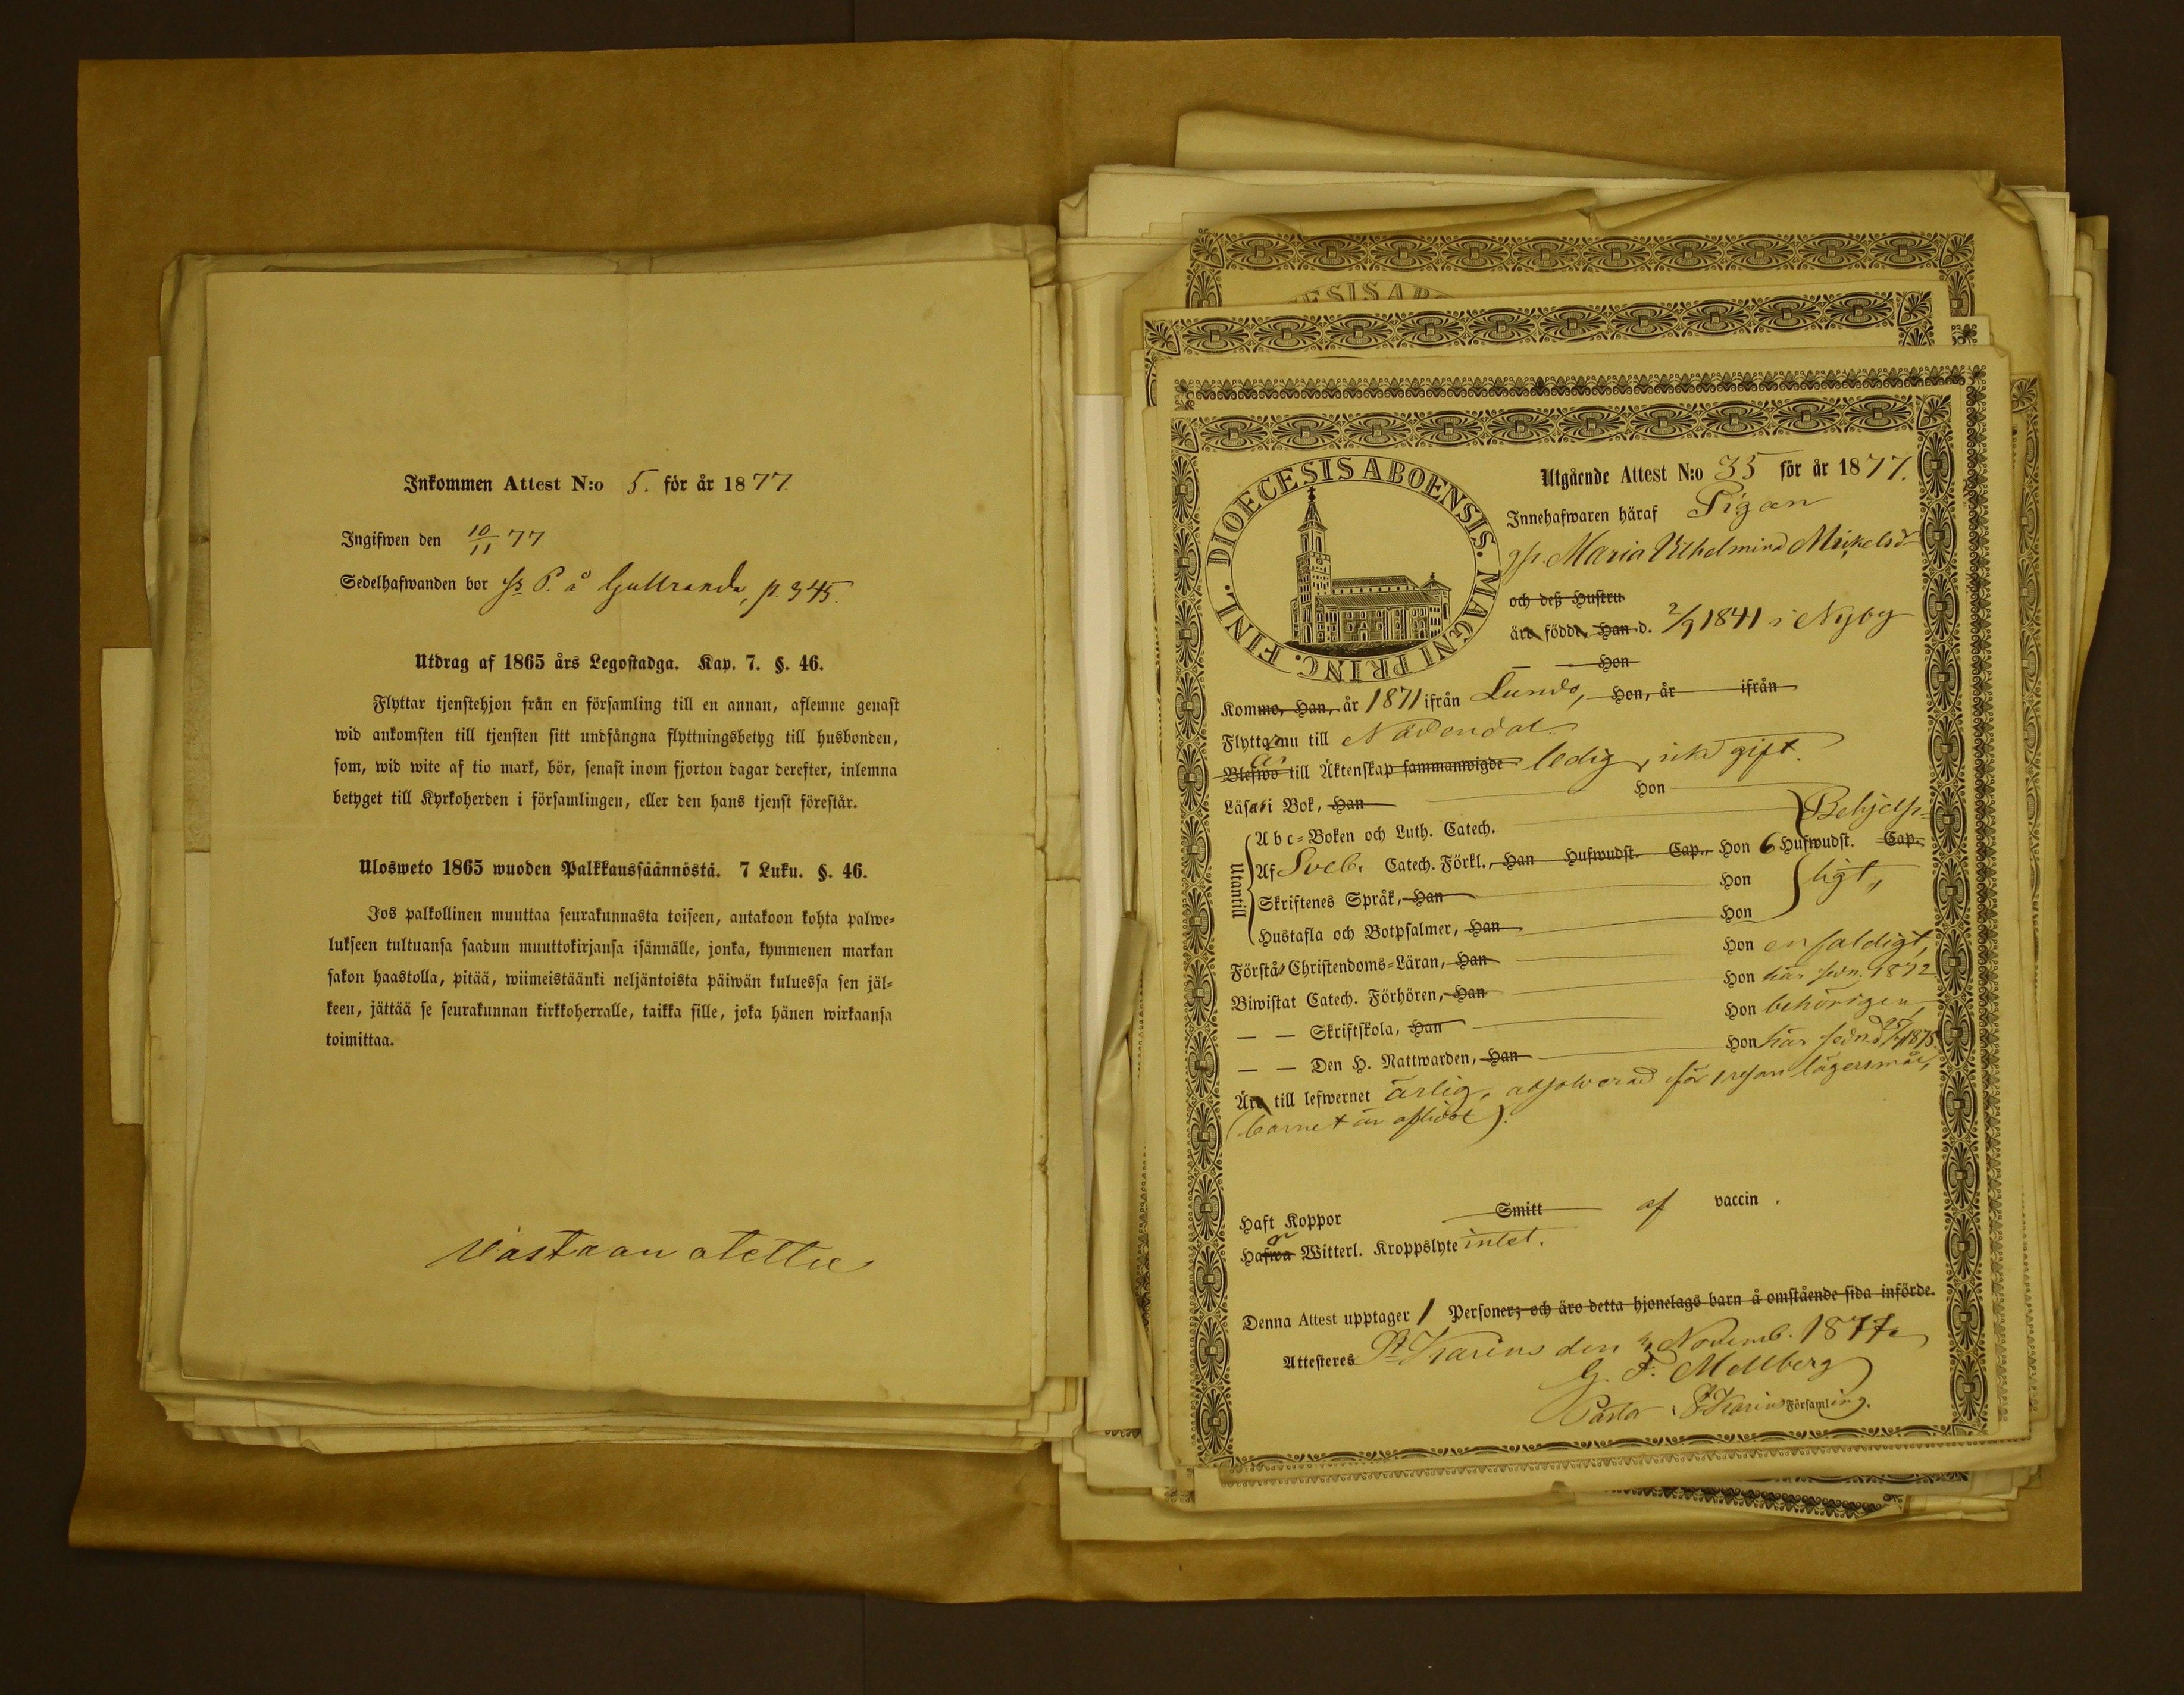 Inkommen Attest N:o 5. för år 1877.
Ingifwen den 10/11 77
Sedelhafwanden bor P. å Gullranda, p. 345.
Utdrag af 1865 års Legostadga. Kap. 7. §. 46.
Flyttar tjenstehjon från en församling till en annan, aflemne genast
wid ankomsten till tjensten sitt undfångna flyttningsbetyg till husbonden,
som, wid wite af tio mark, bör, senast inom fjorton dagar derefter, inlemna
betyget till Kyrkoherden i församlingen, eller den hans tjenst förestår.
Ulosweto 1865 wuoden Palkkaussäännöstä. 7 Luku. §. 46.
Jos palkollinen muuttaa seurakunnasta toiseen, antakoon kohta palwe-
lukseen tultuansa saadun muuttokirjansa isännälle, jonka, kymmenen markan
sakon haastolla, pitää, wiimeistäänki neljäntoista päiwän kuluessa sen jäl-
keen, jättää se seurakunnan kirkkoherralle, taikka sille, joka hänen wirkaansa
toimittaa.
Vastaan otettu
DIOECESIS ABOENSIS. MAGNI PRINC. FINL.
Utgående Attest N:o 35 för år 1877.
Innehafwaren häraf Pigan
Maria Vilhelmina Mickelsdr
och deß Hustru
äro födde, Han d. 2/9 1841 i Nyby
— Hon
Komme, Han, år 1871 ifrån Lundo, Hon, år ifrån
Flytta nu till Nådendal
Blefwo till Äktenskap sammanwigde ledig, icke gift.
Läsa i Bok, Han Hon
Abc-Boken och Luth. Catech. Behjelp-
Utantill
Af Sveb. Catech. Förkl., Han Hufwudst. Cap., Hon 6 Hufwudst. Cap.
Skriftenes Språk, Han Hon ligt,
Hustafla och Botpsalmer, Han Hon
Förstå Christendoms-Läran, Han Hon enfaldigt,
Biwistat Catech. Förhören, Han Hon här sedn. 1872
— — Skriftskola, Han Hon behörigen
— — Den H. Nattwarden, Han Hon här sedn. 1875.
Äro till lefwernet ärlig, absolverad för 1 resan lägersmål,
(barnet är aflidet).
Haft Koppor Smitt af vaccin.
Hafwa Witterl. Kroppslyte intet.
Denna Attest upptager 1 Personer; och äro detta hjonelags barn å omstående sida införde.
Attesteres St Karins den Novemb. 1877.
G. F. Mollberg
Pastor i St Karins Församling.
ESIS AB